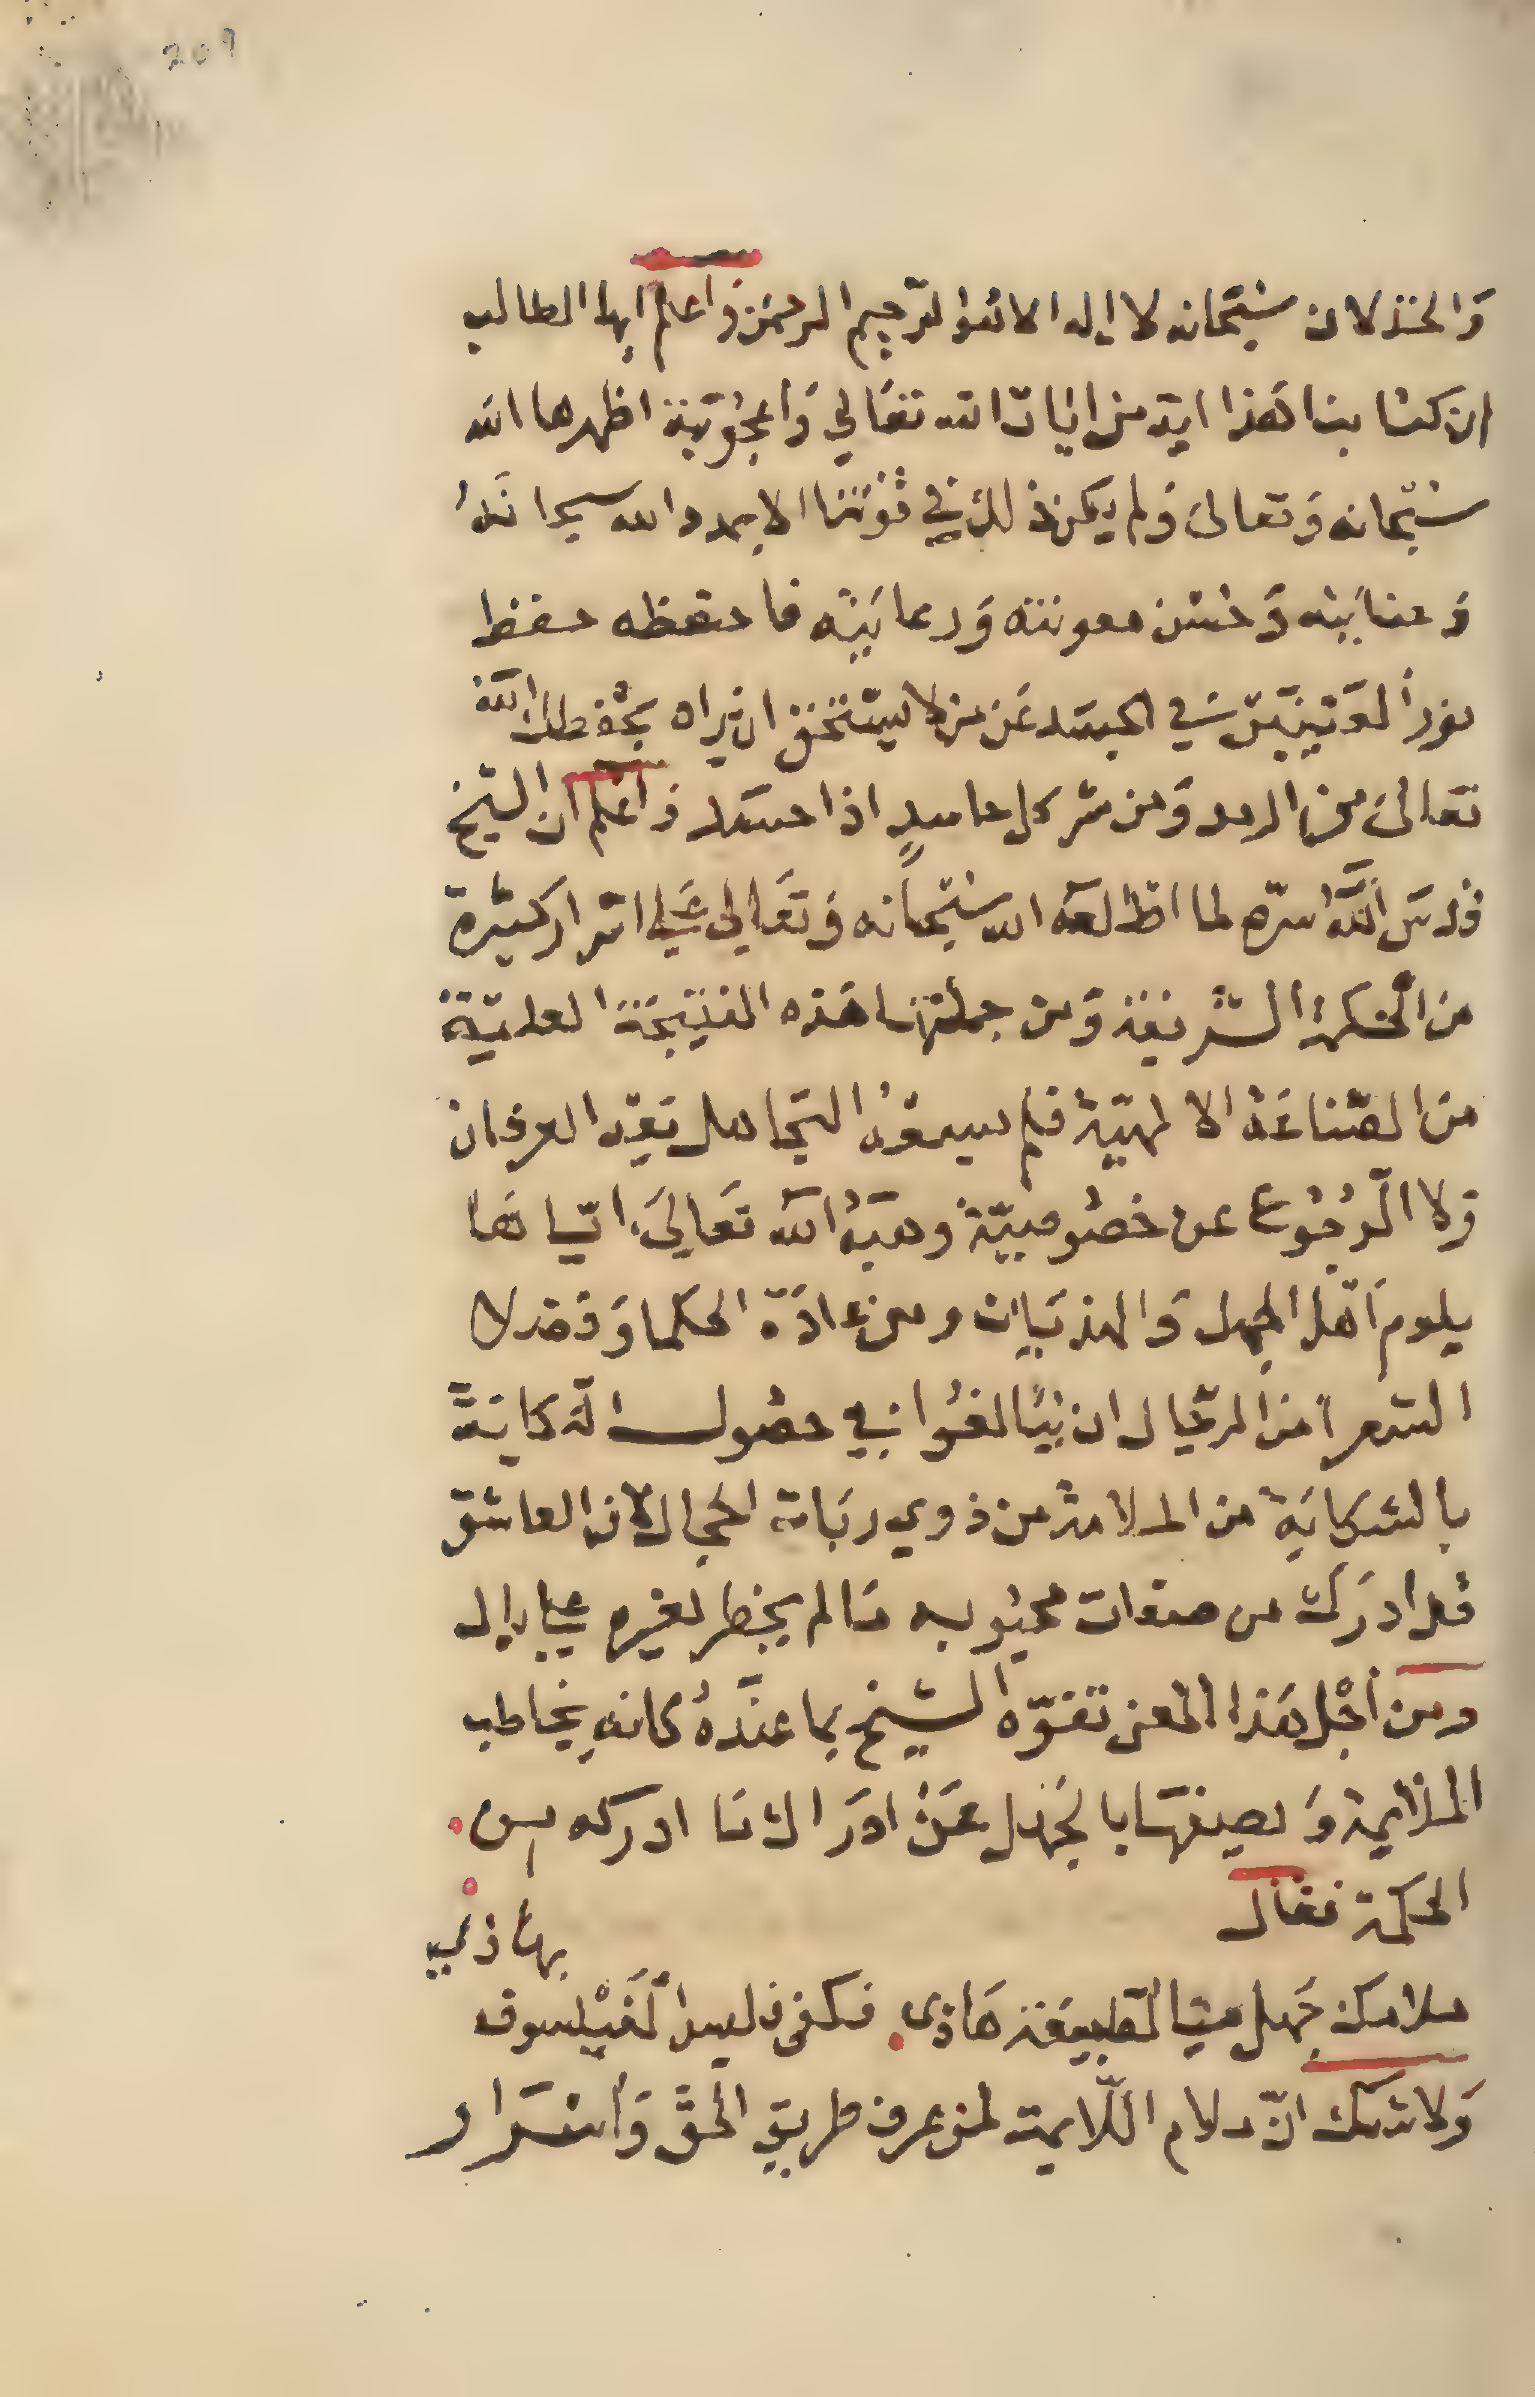 209
وَالخذلان سُبحانه لا إله الا هو الرّحيم الرحمن وَاعلم ايها الطالب
ان كتابنا هَذا اية من ايات الله تعَالي وَاعجُوبَة اظهرها الله
سُبحانه وَتعالىَ وَلم يكن ذلك في قُوتنا الا بمدد الله سبحانَهُ
وَعنايَته وَحُسْن معونته وَرعايَته فاحتفظه حفظ
نور العَينيَن في الجسَد عَن من لا يستحق ان يراه يحْفظك اللهُ
تعَالىَ من الرمد وَمن شر كل حاسدٍ اذا حسَد وَاعْلم ان الشيخ
قدسَ اللَّهُ سرّه لما اطلعَه الله سُبحَانه وَتعَالي عَلي اسْرار كثيرة
من الحْكمة الشريفة وَمن جملتها هَذه النتيجَة العلميّة
منَ الصّناعَة الالهيّة فلم يسعَهُ التجاهل بَعْد العرفان
وَلا الرّجُوُع عن خصُوصيّة وهبَهُ الله تعَالىَ ايّاهَا
يلوم اَهْل الجهل وَالهذيَان ومن عادَة الحكما وَفضلا
الشعرا من الرجَال ان يُبَالغُوا في حصُول النّكايَة
بالشكايَة من الملامة من ذوي ربَات الحجال لان العاشق
قد ادرَك من صفات محبُوبه مَا لم يخطر لغيره على بال
ومن اجْل هَذا المعنى تفوّه الشيخ بما عندَهُ كانه يخاطب
اللائمة وَيصفهَا بالجَهل عَنْ ادرَاك مَا ادركه من
الحكمة فقال
بهَاذي
ملامك جَهل بالطبيعَة هَاذي فكفى فليس الفَيْلسوف
وَلا شك انّ ملام اللّايمة لمن عرف طريق الحقّ وَاسْرَار